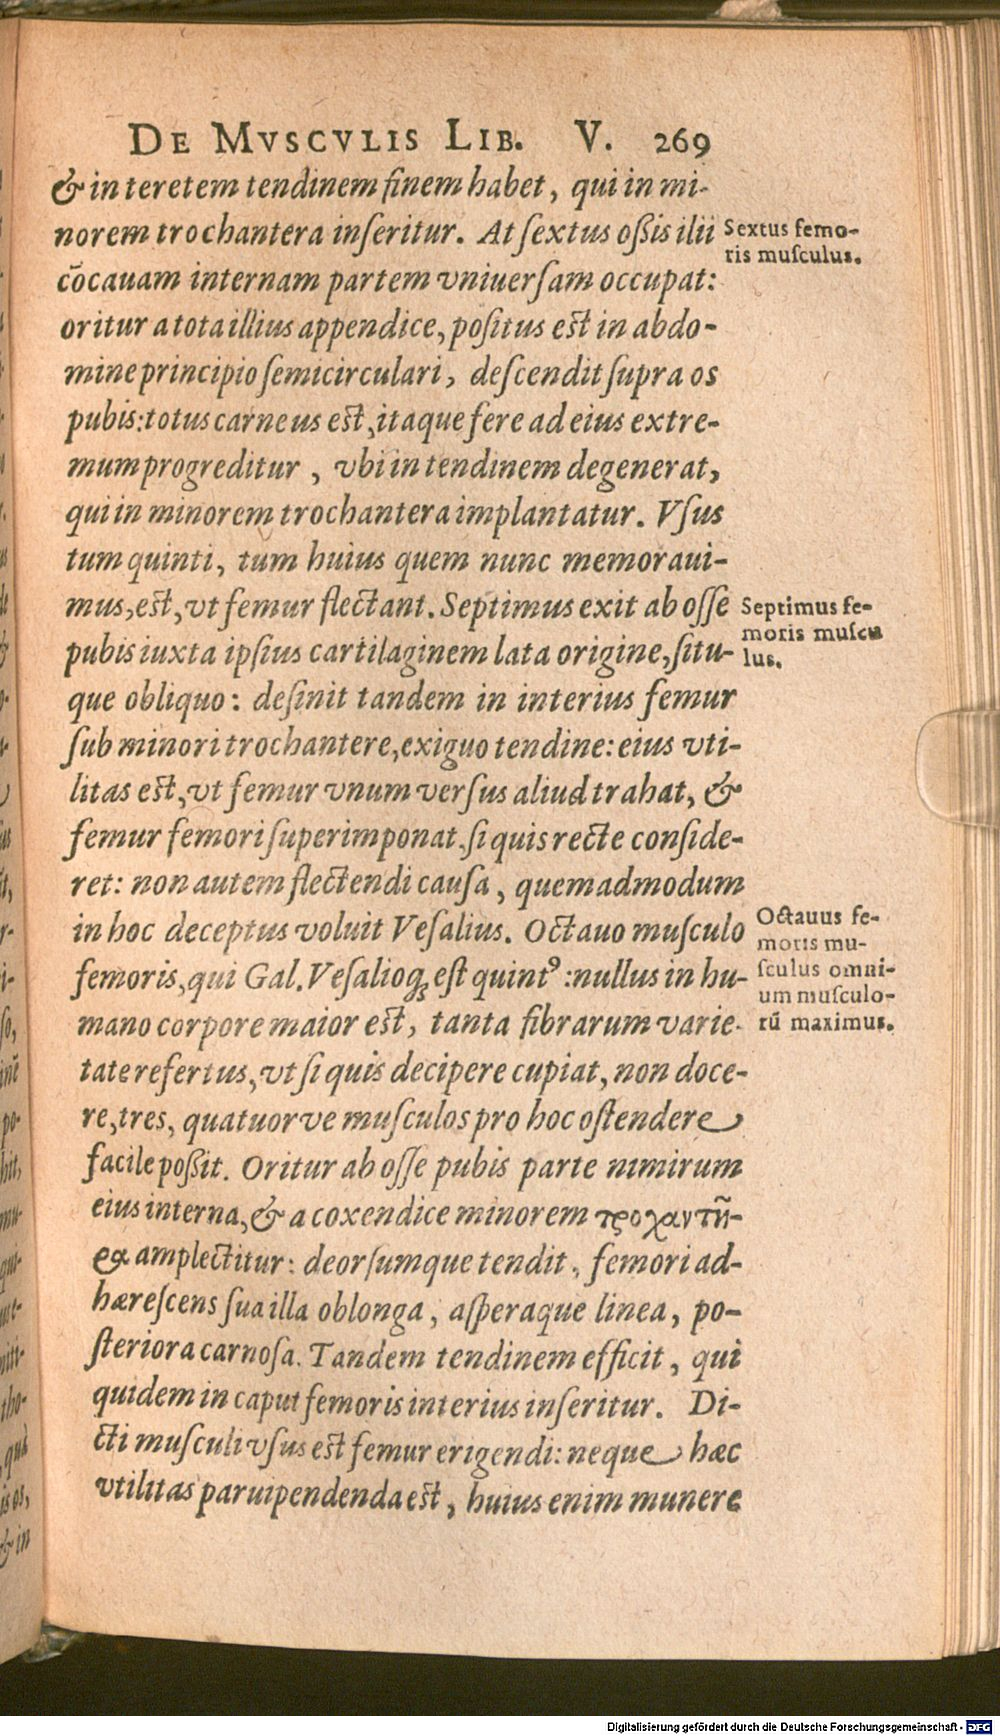 DE MVSCVLIS LIB. V. 269
& in teretem tendinem finem habet, qui in mi-
norem trochantera inſeritur. At ſextus oſsis ilii
cōcauam internam partem vniuerſam occupat:
oritur a tota illius appendice, poſitus est in abdo-
mine principio ſemicirculari, deſcendit ſupra os
pubis: totus carneus est, itaque fere ad eius extre-
mum progreditur, vbi in tendinem degenerat,
qui in minorem trochantera implantatur. Vſus
tum quinti, tum huius quem nunc memoraui-
mus, est, vt femur flectant. Septimus exit ab oſſe
pubis iuxta ipſius cartilaginem lata origine, ſitu-
que obliquo: deſinit tandem in interius femur
ſub minori trochantere, exiguo tendine: eius vti-
litas est, vt femur vnum verſus aliud trahat, &
femur femori ſuperimponat, ſi quis recte conſide-
ret: non autem flectendi cauſa, quemadmodum
in hoc deceptus voluit Veſalius. Octauo muſculo
femoris, qui Gal. Veſalioq; eſt quintꝰ: nullus in hu-
mano corpore maior est, tanta fibrarum varie-
tate refertus, vt ſi quis decipere cupiat, non doce-
re, tres, quatuorve muſculos pro hoc oſtendere
facile poſsit. Oritur ab oſſe pubis parte nimirum
eius interna, & a coxendice minorem τροχαντῆ-
ρα amplectitur: deorſumque tendit, femori ad-
hæreſcens ſua illa oblonga, aſperaque linea, po-
ſteriora carnoſa. Tandem tendinem efficit, qui
quidem in caput femoris interius inſeritur. Di-
cti muſculi vſus est femur erigendi: neque hæc
vtilitas paruipendenda est, huius enim munere
Sextus femo-
ris muſculus.
Septimus fe-
moris muſcu
lus.
Octauus fe-
moris mu-
ſculus omni-
um muſculo-
rū maximus.
Digitalisierung gefördert durch die Deutsche Forschungsgemeinschaft - DFG